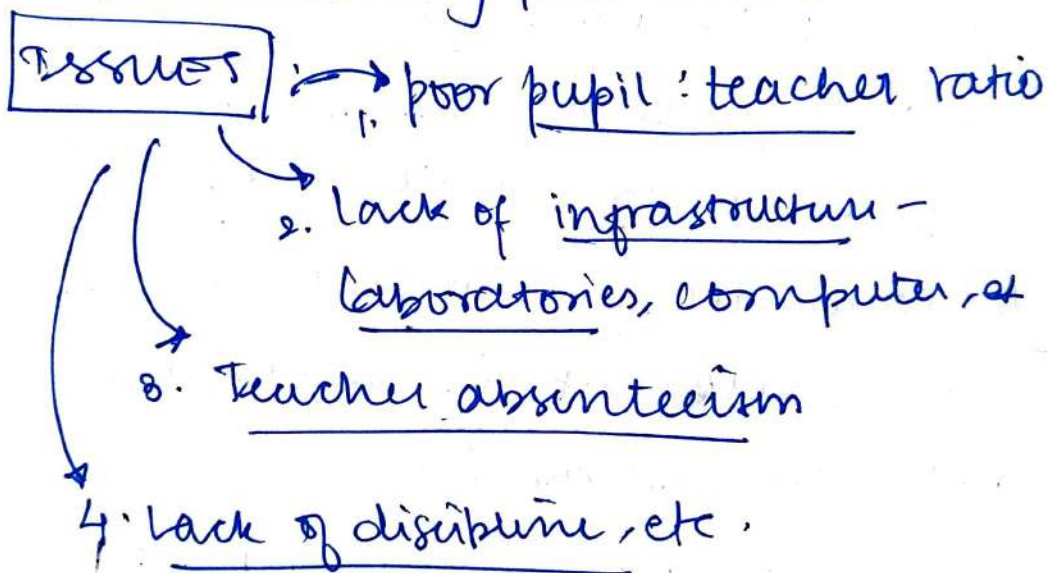 ISSUES : → poor pupil : teacher ratio
1.
2. Lack of infrastructure -
Laboratories, computer, et
3. Teacher absenteeism
4. Lack of discipline, etc.